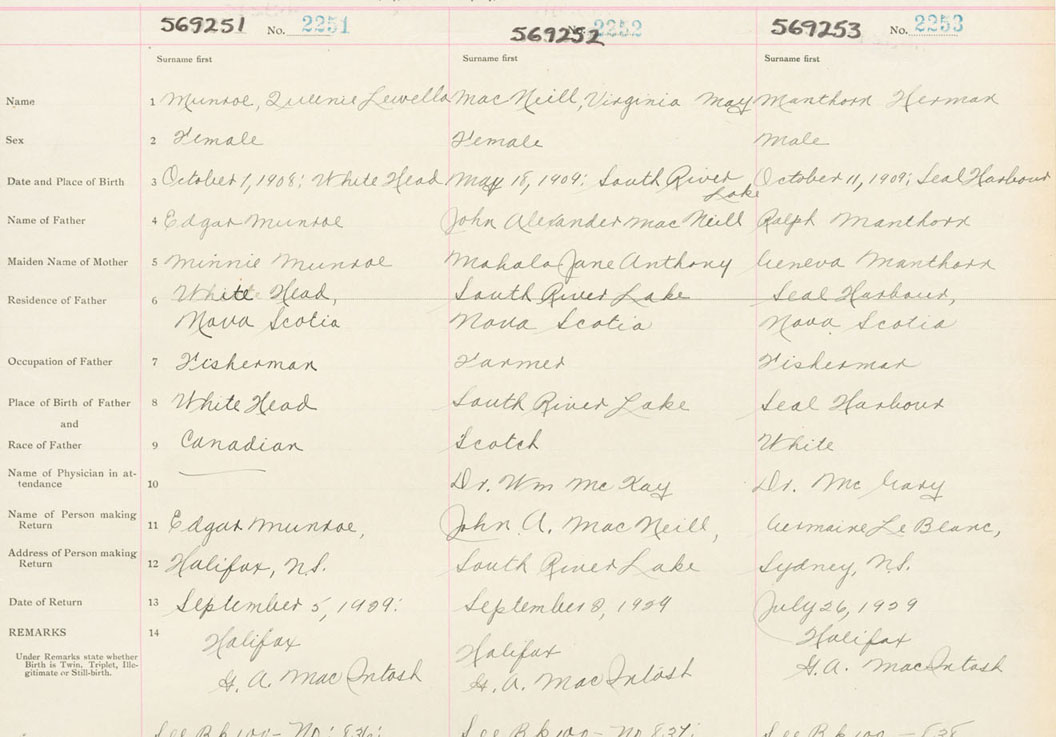 569251 No. 2251 569252 No. 2252 569253 No. 2253
Surname first Surname first Surname first
Name 1 Munroe, Queenie Lewella MacNeill, Virginia May Manthorn Herman
Sex 2 Female Female Male
Date and Place of Birth 3 October 1, 1908; White Head May 18, 1909; South River Lake October 11, 1909; Seal Harbour
Name of Father 4 Edgar Munroe John Alexander MacNeill Ralph Manthorn
Maiden Name of Mother 5 Minnie Munroe Mahala Jane Anthony Geneva Manthorn
Residence of Father 6 White Head, South River Lake Seal Harbour,
Nova Scotia Nova Scotia Nova Scotia
Occupation of Father 7 Fisherman Farmer Fisherman
Place of Birth of Father 8 White Head South River Lake Seal Harbour
and
Race of Father 9 Canadian Scotch White
Name of Physician in at-
tendance 10 Dr. Wm McKay Dr. Mc Gary
Name of Person making
Return 11 Edgar Munroe, John A. MacNeill, Germaine LeBlanc,
Address of Person making
Return 12 Halifax, N.S. South River Lake Sydney, N.S.
Date of Return 13 September 5, 1929: September 8, 1929 July 26, 1929
REMARKS 14 Halifax Halifax Halifax
Under Remarks state whether
Birth is Twin, Triplet, Ille-
gitimate or Still-birth.
G. A. MacIntosh G. A. MacIntosh G. A. MacIntosh
See Bk 100 - No: 836: See Bk 100 - No 837: See Bk 100 - 838